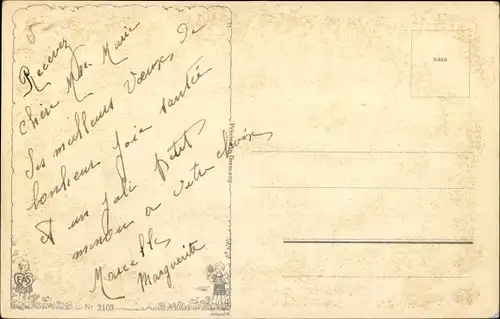 5
Recevez
chère Mme Marie
Ses meilleurs Voeux, de
bonheur joie santée
et un joli petit
minou a votre choix
Marcelle
Marguerite
EAS
Nr 2103
Printed in Germany
5443